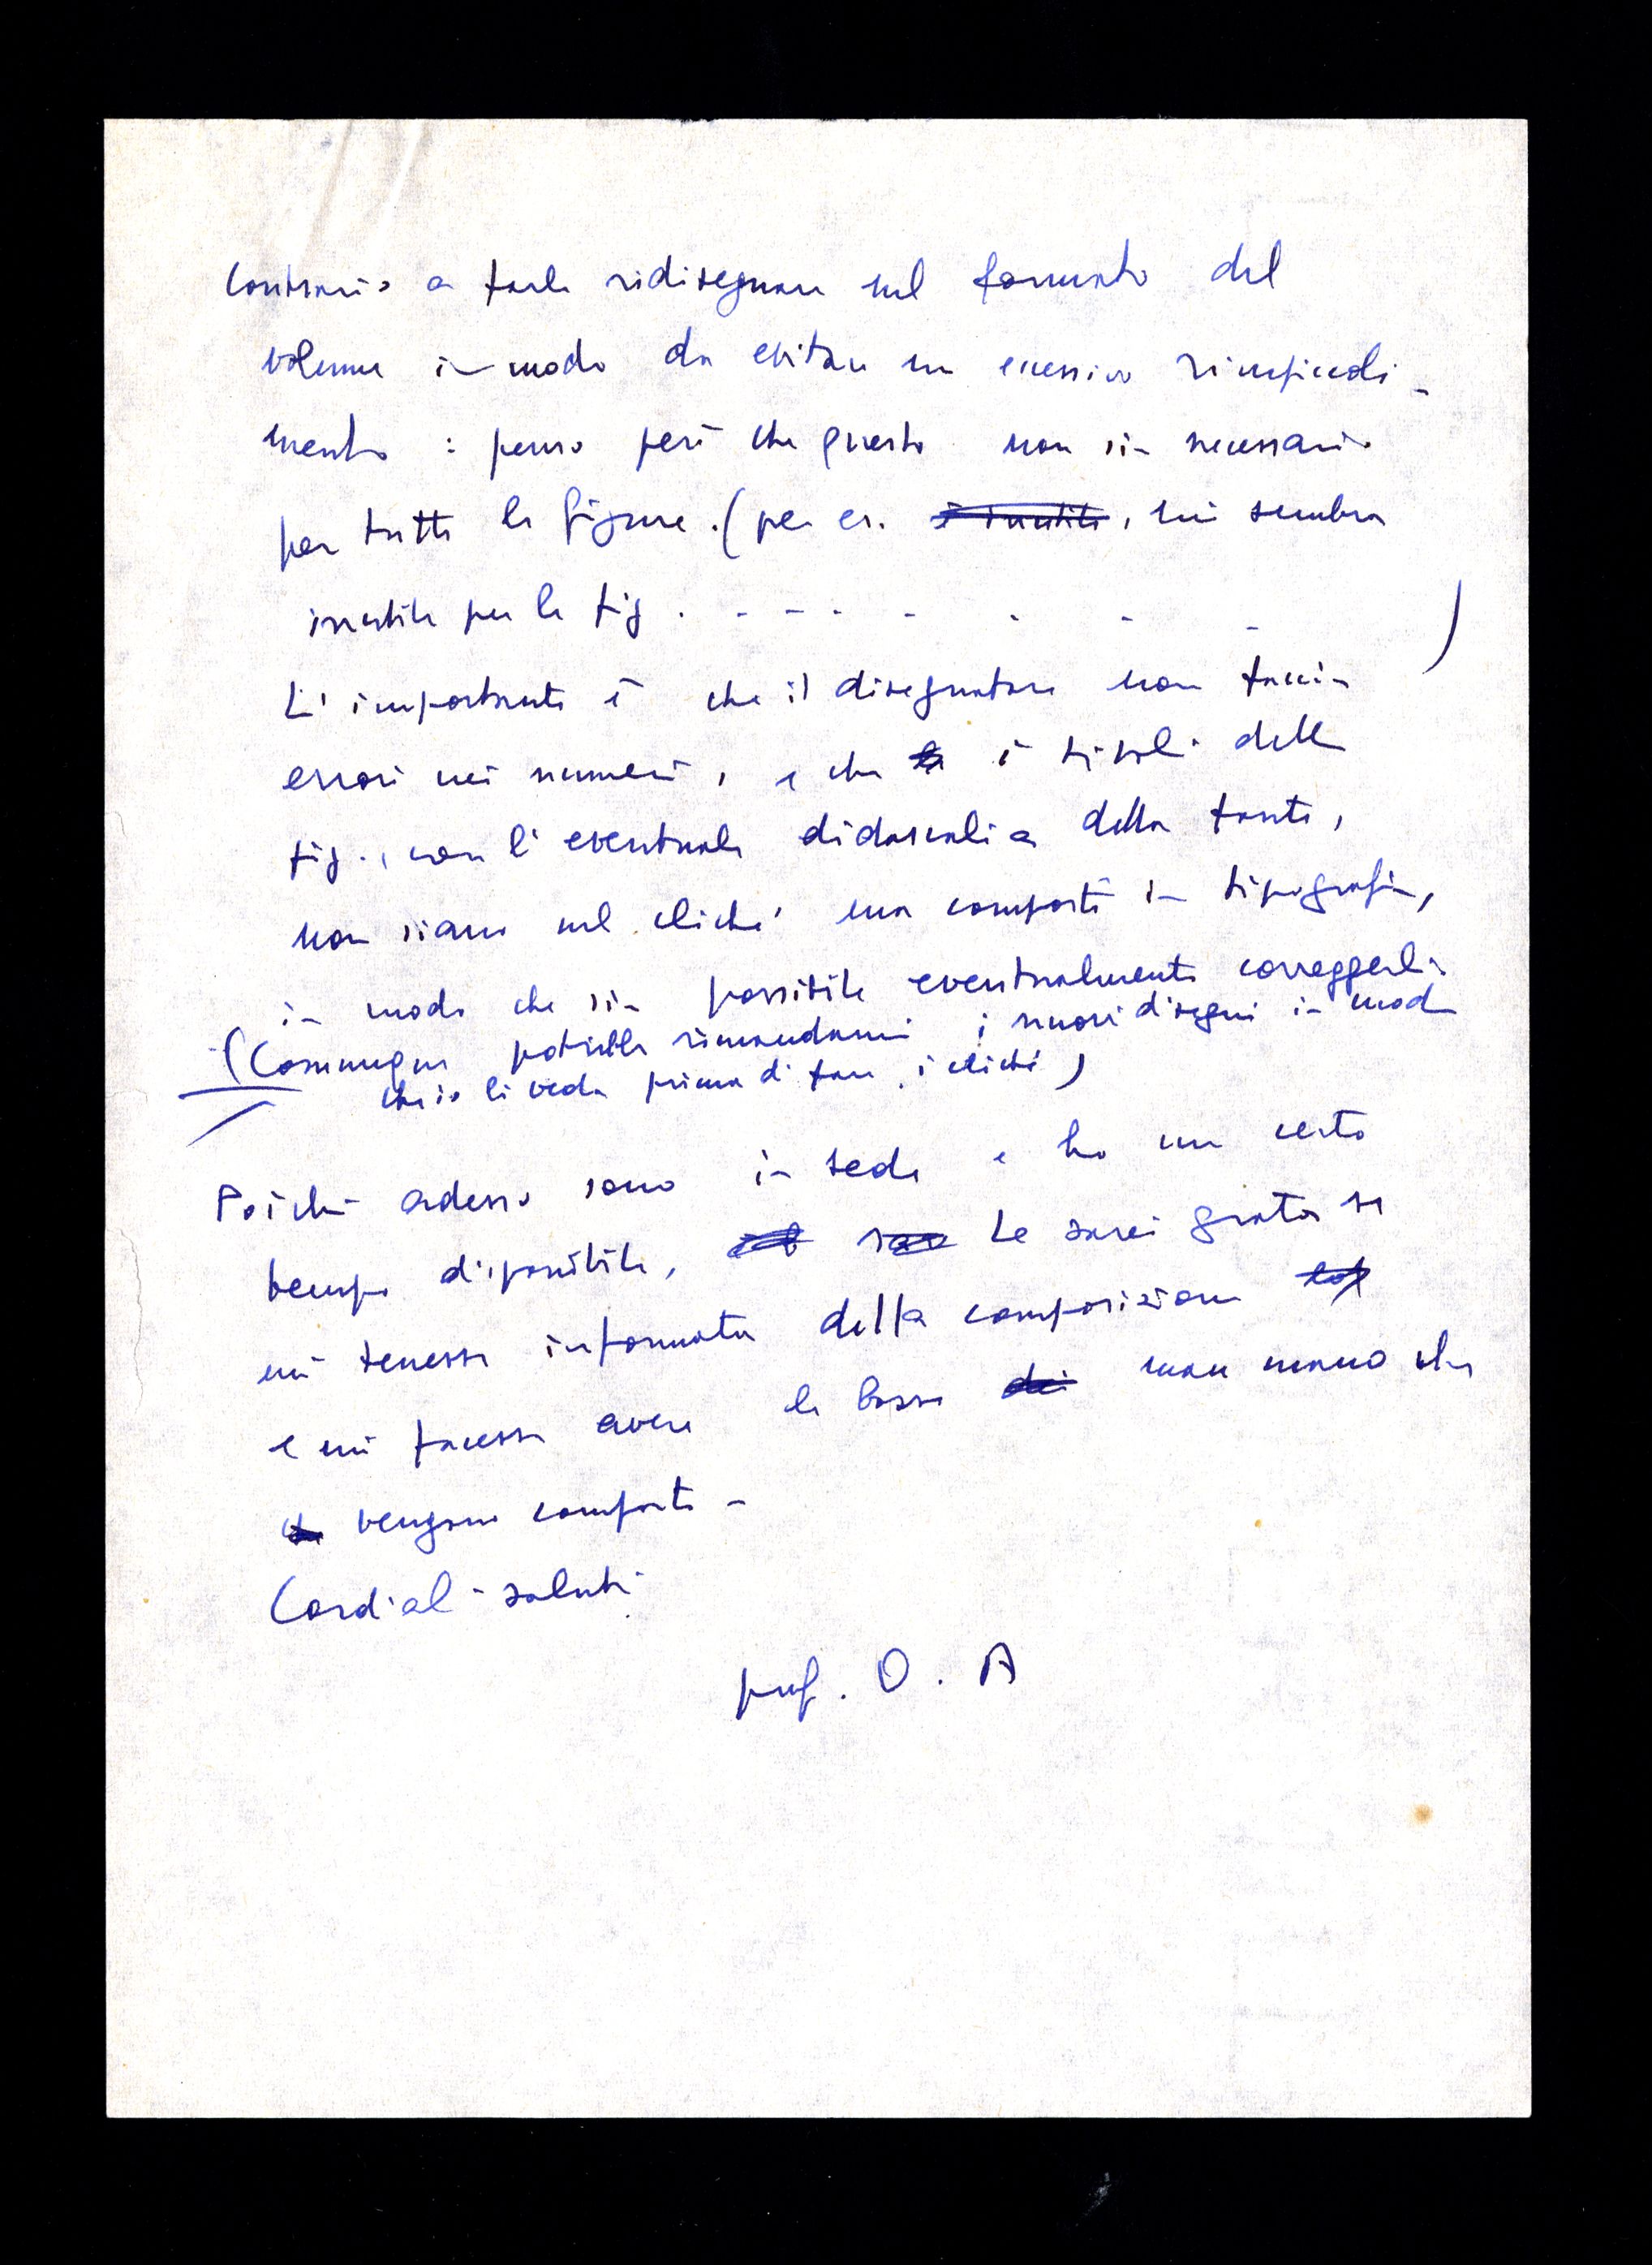 contrario a farle ridisegnare nel formato del
volume in modo da evitare un eccessivo rimpiccoli-
mento : penso però che questo non sia necessario
per tutte le figure. (per es. è inutile, mi sembra
inutile per le fig. - - - - - - - )
L'importante è che il disegnatore non faccia
errori nei numeri, e che le i titoli delle
fig., con l'eventuale didascalia della fonte,
non siano nel cliché ma composti in tipografia,
in modo che sia possibile eventualmente correggerli
(Comunque potrebbe rimandarmi i nuovi disegni in modo
che io li veda prima di fare i cliché)
Poiché adesso sono in sede e ho un certo
tempo disponibile, Le sarei grata se
mi tenesse informata della composizione
e mi facesse avere le bozze dei man mano che
vengono composte -
Cordiali saluti
prof. O. A